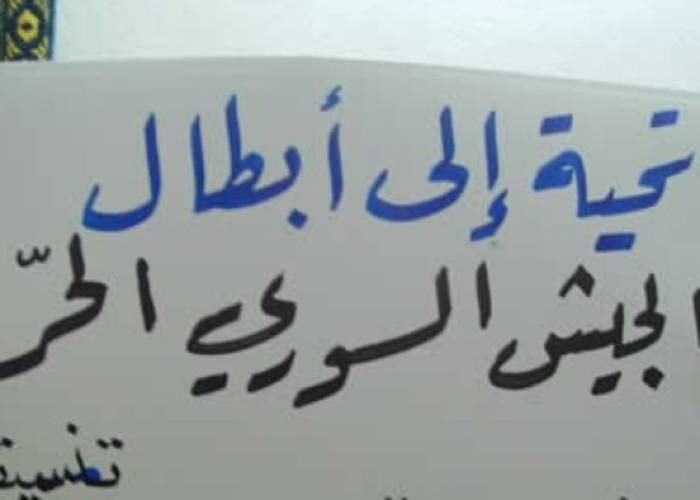 تحية إلى أبطال
الجيش السوري الحرّ